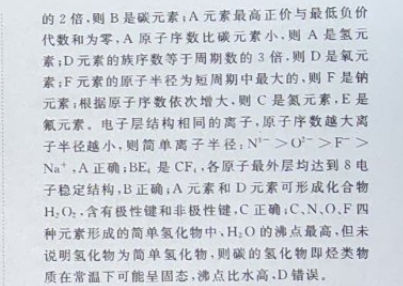 的 2 倍,则 B 是碳元素;A 元素最高正价与最低负价
代数和为零,A 原子序数比碳元素小,则 A 是氢元
素;D 元素的族序数等于周期数的 3 倍,则 D 是氧元
素;F 元素的原子半径为短周期中最大的,则 F 是钠
元素;根据原子序数依次增大,则 C 是氮元素,E 是
氟元素。电子层结构相同的离子,原子序数越大离
子半径越小,则简单离子半径:N³⁻＞O²⁻＞F⁻＞
Na⁺,A 正确;BE₄ 是 CF₄,各原子最外层均达到 8 电
子稳定结构,B 正确;A 元素和 D 元素可形成化合物
H₂O₂,含有极性键和非极性键,C 正确;C、N、O、F 四
种元素形成的简单氢化物中,H₂O 的沸点最高,但未
说明氢化物为简单氢化物,则碳的氢化物即烃类物
质在常温下可能呈固态,沸点比水高,D 错误。